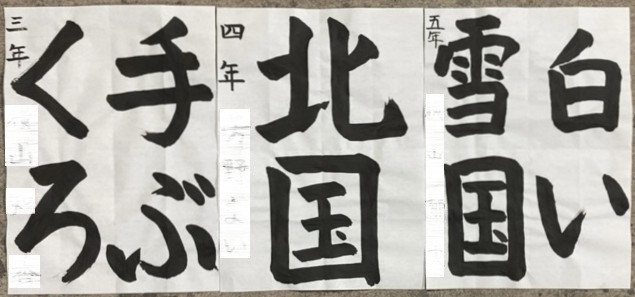 手ぶ
くろ
三年
北国
四年
白い
雪国
五年